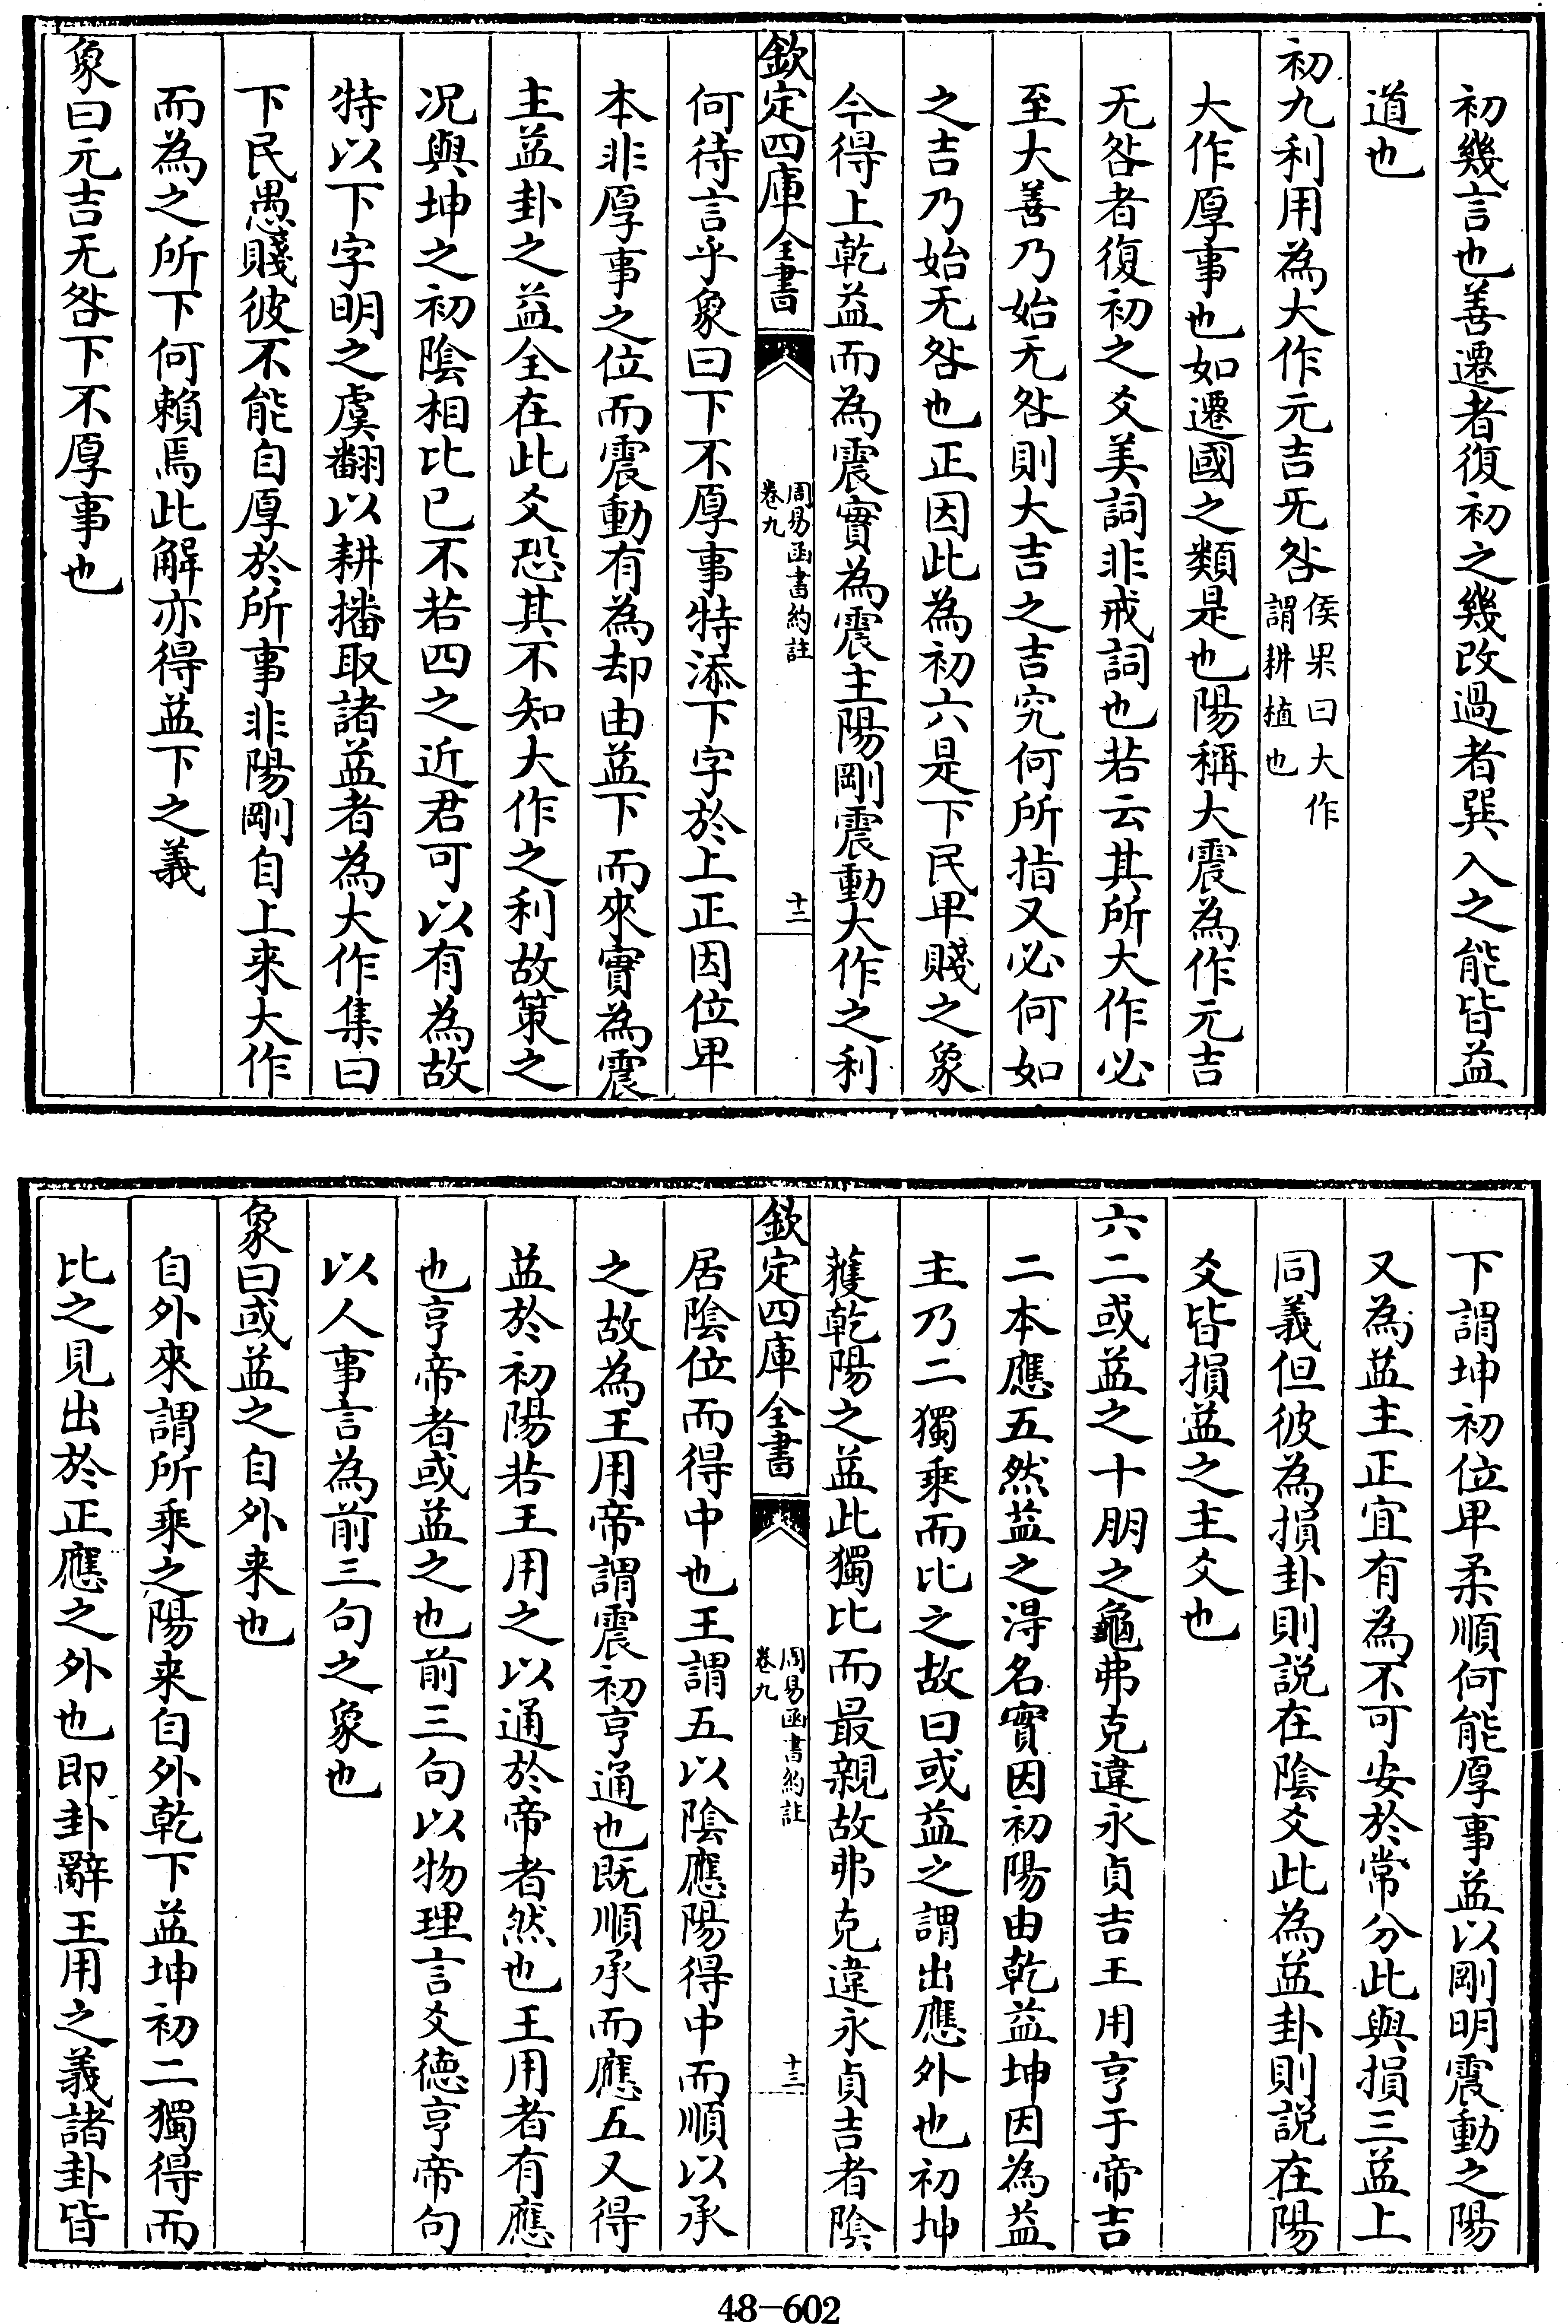 初幾言也善遷者復初之幾改過者巽入之能皆益
道也
初九利用為大作元吉无咎侯果曰大作
謂耕植也
大作厚事也如遷國之類是也陽稱大震為作元吉
无咎者復初之爻美詞非戒詞也若云其所大作必
至大善乃始无咎則大吉之吉究何所指又必何如
之吉乃始无咎也正因此為初六是下民卑賤之象
今得上乾益而為震實為震主陽剛震動大作之利
欽定四庫全書
周易函書約註
卷九
十二
何待言乎象曰下不厚事特添下字於上正因位卑
本非厚事之位而震動有為却由益下而來實為震
主益卦之益全在此爻恐其不知大作之利故策之
况與坤之初陰相比已不若四之近君可以有為故
特以下字明之虞翻以耕播取諸益者為大作集曰
下民愚賤彼不能自厚於所事非陽剛自上来大作
而為之所下何賴焉此解亦得益下之義
象曰元吉无咎下不厚事也
下謂坤初位卑柔順何能厚事益以剛明震動之陽
又為益主正宜有為不可安於常分此與損三益上
同義但彼為損卦則説在陰爻此為益卦則説在陽
爻皆損益之主爻也
六二或益之十朋之龜弗克違永貞吉王用亨于帝吉
二本應五然益之得名實因初陽由乾益坤因為益
主乃二獨乘而比之故曰或益之謂出應外也初坤
獲乾陽之益此獨比而最親故弗克違永貞吉者陰
欽定四庫全書
周易函書約註
卷九
十三
居陰位而得中也王謂五以陰應陽得中而順以承
之故為王用帝謂震初亨通也既順承而應五又得
益於初陽若王用之以通於帝者然也王用者有應
也亨帝者或益之也前三句以物理言爻徳亨帝句
以人事言為前三句之象也
象曰或益之自外来也
自外來謂所乘之陽来自外乾下益坤初二獨得而
比之見出於正應之外也即卦辭王用之義諸卦皆
48-602